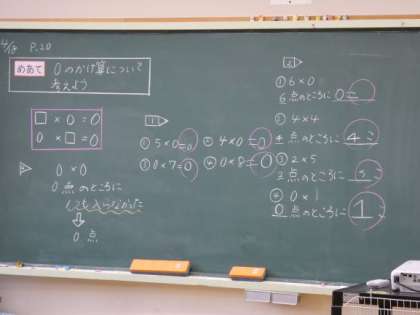 P.20
めあて 0のかけ算について
考えよう
□ × 0 = 0
0 × □ = 0
0 × 0
0点のところに
1つも入らなかった
⇩
0点
1
① 5×0=0 ② 4×0=0
③ 0×7=0 ④ 0×8=0
① 6×0
6点のところに 0こ
② 4×4
4点のところに 4こ
③ 2×5
2点のところに 5こ
④ 0×1
0点のところに 1こ